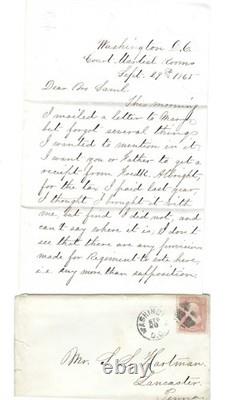 Washington D.C.
Court-Martial Rooms
Sept. 29th 1865
Dear Bro Saml.
This morning
I mailed a letter to
but forgot several things
I wanted to mention in it
I want you or Father to get a
receipt from Albright,
for the tax I paid last year.
I thought I brought it with
me but find I did not, and
can't say where it is, I do n't
see that there are any provision
made for Regiment to vote here,
i.e. any more than supposition.
WASHINGTON
D.C.
Mr. S. L. Hartman.
Lancaster.
Penna.
© ebay.com